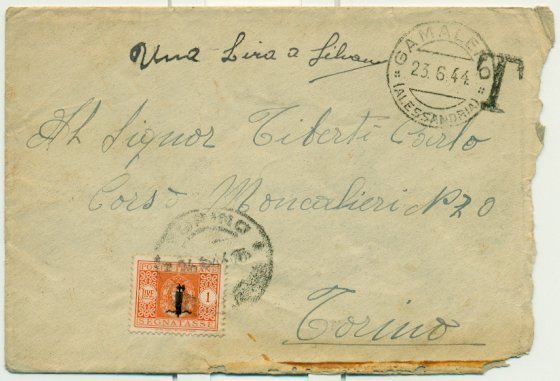 Una Lira a
GAMALERO
23.6.44
(ALESSANDRIA)
T
Al Signor Tiberti Carlo
Corso Moncalieri N 20
TORINO
1
SEGNATASSE
Torino